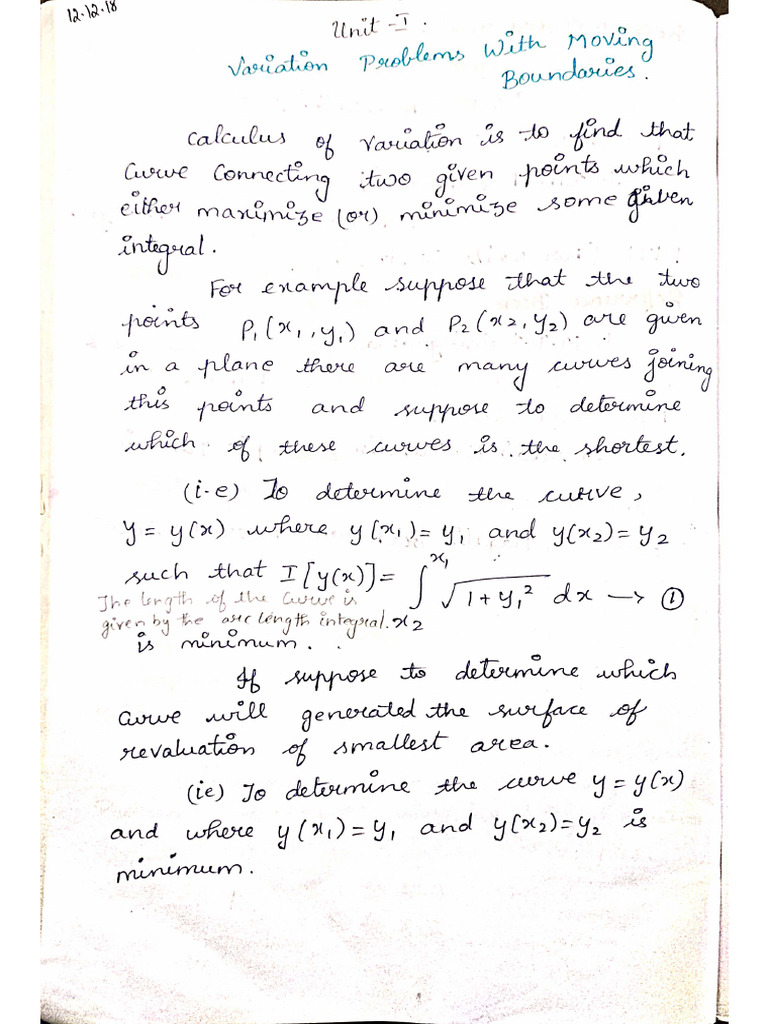 12.12.18
Unit - I.
Variation Problems With Moving
Boundaries.
Calculus of variation is to find that
Curve Connecting two given points which
either maximize (or) minimize some given
integral.
For example suppose that the two
points P₁(x₁, y₁) and P₂(x₂, y₂) are given
in a plane there are many curves joining
this points and suppose to determine
which of these curves is the shortest.
(i.e) To determine the curve,
y = y(x) where y(x₁) = y₁ and y(x₂) = y₂
such that I[y(x)] = ∫ₓ₂^x₁ √(1 + y₁²) dx → ①
The length of the curve is
given by the arc length integral.
is minimum.
If suppose to determine which
curve will generated the surface of
revaluation of smallest area.
(ie) To determine the curve y = y(x)
and where y(x₁) = y₁ and y(x₂) = y₂ is
minimum.